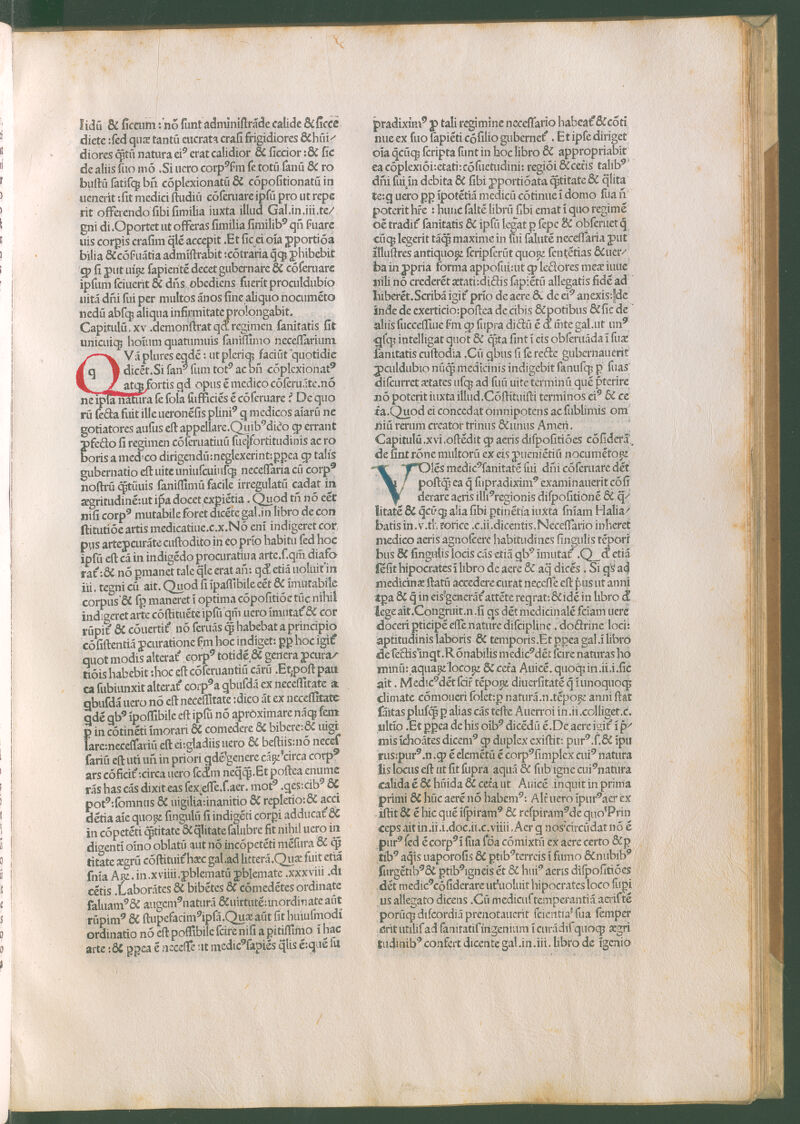 lidū & siccum : nō sunt administrāde calide & sicce
diete : sed quæ tantū eucrata crasi frigidiores & hūi/
diores q̄tū natura ei⁹ erat calidior & siccior : & sic
de aliis suo mō. Si uero corp⁹ fm se totū sanū & ro
bustū satisq; bn̄ cōplexionatū & cōpositionatū in
uenerit : sit medici studiū cōseruare ipsū pro ut repe
rit offerendo sibi similia iuxta illud Gal.in.iii.te/
gni di. Oportet ut offeras similia similib⁹ qn̄ suare
uis corpis crasim q̄lē accepit. Et sic ei oīa ꝓportiōa
bilia & cōsuātia admīstrabit : cōtraria q̄q; ꝓhibebit
ꝙ si put uiꝗ sapientē decet gubernare & cōseruare
ipsum sciuerit & dn̄s obediens fuerit proculdubio
uitā dn̄i sui per multos ānos sine aliquo nocumēto
nedū absq; aliqua infirmitate prolongabit.
Capitulū. xv .demonstrat qd̄ regimen sanitatis sit
unicuiq; hoīum quatumuis sanissimo necessarium
QVā plures eqdē : ut pleriq; faciūt quotidie
dicēt. Si san⁹ sum tot⁹ ac bn̄ cōplexionat⁹
atq; fortis qd opus ē medico cōseruāte. nō
ne ipsa natura se sola sufficiēs ē cōseruare ? De quo
rū secta fuit ille ueronēsis plini⁹ q medicos aiarū ne
gotiatores ausus est appellare. Quib⁹ dico ꝙ errant
ꝓfecto si regimen cōseruatiuū suę fortitudinis ac ro
boris a medico dirigendū : neglexerint : ppea ꝙ talis
gubernatio est uite uniuscuiusq; necessaria cū corp⁹
nostrū q̄tūuis sanissimū facile irregulatū cadat in
ægritudinē : ut ipa docet expiētia . Quod tn̄ nō eēt
nisi corp⁹ mutabile foret dicēte gal.in libro de con
stitutiōe artis medicatiue.c.x. Nō enī indigeret cor
pus arte pcurāte custodito in eo prio habitu sed hoc
ipsū est cā in indigēdo procuratiua arte.s.qm̄ diafo
rat᷑ : & nō pmanet tale q̄le erat an̄ : qd̄ etiā uoluit in
iii. tegni cū ait. Quod si īpassibile eēt & īmutabile
corpus & sp maneret ī optima cōpositiōe tūc nihil
indigeret arte cōstituēte ipsū qm̄ uero īmutat᷑ & cor
rūpit᷑ & cōuertit᷑ nō seruās q̄ habebat a principio
cōsistentiā pcuratione fm hoc indiget : pp hoc igit᷑
quot modis alterat᷑ corp⁹ totidē & genera pcura/
tiōis habebit : hoc est cōseruantiū cārū . Et post pau
ca subiunxit alterat᷑ corp⁹ a qbusdā ex necessitate a
qbusdā uero nō est necessitate : dico āt ex necessitate
qdē qb⁹ īpossibile est ipsū nō aproximare nāq; sem
p in cōtinēti īmorari & comedere & bibere : & uigi
lare : necessariū est ei : gladiis uero & bestiis : nō neces
sariū est uti un̄ in priori qdē genere cāꝝ circa corp⁹
ars cōficit᷑ : circa uero secdm neq̄q̄. Et postea enume
rās has cās dixit eas sex esse. s.aer. mot⁹ .qes : cib⁹ &
pot⁹ : somnus & uigilia : inanitio & repletio : & acci
dētia aīe quoꝝ singulū si indigēti corpi adducat᷑ &
in cōpetēti q̄titate & q̄litate salubre fit nihil uero in
digenti oīno oblatū aut nō incōpetēti mēsura & q̄
titate ægrū cōstituit hæc gal.ad litterā. Quæ fuit etiā
snīa Aꝝ.in.xviiii. problematū problemate .xxxviii .di
cētis . Laborātes & bibētes & cōmedētes ordinate
saluam⁹ & augem⁹ naturā & uirtutē : inordinate aūt
rūpim⁹ & stupefacim⁹ ipsā. Quæ aūt sit huiusmodi
ordinatio nō est possibile scire nisi a pitissimo ī hac
arte : & ppea ē necesse ut medic⁹ sapiēs q̄lis ē : quē su
pradixim⁹ ꝓ tali regimine necessario habeat᷑ & cōti
nue ex suo sapiēti cōsilio gubernet᷑ . Et ipse diriget
oīa q̄cūq; scripta sunt in hoc libro & appropriabit
ea cōplexiōi : etati : cōsuetudini : regiōi & cetis talib⁹
dn̄i sui in debita & sibi ꝓportiōata q̄titate & q̄lita
te : q uero pp īpotētiā medicū cōtinue ī domo sua n̄
poterit hr̄e : hunc saltē librū sibi emat ī quo regimē
oē tradit᷑ sanitatis & ipsū legat p sepe & obseruet q̄
cūq; legerit tāq̄ maxime in sui salutē necessaria put
illustres antiquoꝝ scripserūt quoꝝ sentētias & uer/
ba in ꝓpria forma apposui : ut ꝙ lectores meæ iuue
nili nō crederēt ætati : dictis sapiētū allegatis fidē ad
hiberēt. Scribā igit᷑ prio de aere & de ei⁹ anexis : de
inde de exerticio : postea de cibis & potibus & sic de
aliis successiue fm ꝙ supra dictū ē d̄ mēte gal.ut un⁹
qsq; intelligat quot & q̄ta sint ī eis obseruāda ī suæ
sanitatis custodia . Cū qbus si se recte gubernauerit
ꝓculdubio nūq̄ medicinis indigebit sanusq; p suas
discurret ætates usq; ad suū uite terminū quē p̄terire
nō poterit iuxta illud. Cōstituisti terminos ei⁹ & ce
ta. Quod ei concedat omnipotens ac sublimis om
niū rerum creator trinus & unus Amen.
Capitulū.xvi.ostēdit ꝙ aeris dispositiōes cōsiderā
de sint rōne multorū ex eis ꝓueniētiū nocumētoꝝ
VOlēs medic⁹ sanitatē sui dn̄i cōseruare dēt
postq̄ ea q̄ supradixim⁹ examinauerit cōsi
derare aeris illi⁹ regionis dispositionē & q̄/
litatē & q̄cūq; alia sibi ptinētia iuxta sniam Halia/
batis in .v. theorice .c.ii. dicentis. Necessario inheret
medico aeris agnoscere habitudines singulis tēpori
bus & singulis locis cās etiā qb⁹ īmutat᷑ . Qd̄ etiā
sēsit hipocrates ī libro de aere & aq̄ dicēs . Si qs ad
medicinæ statū accedere curat necesse est p̄us ut anni
tpa & q̄ in eis generāt᷑ attēte reqrat : & idē in libro d̄
lege ait. Congruit.n.si qs dēt medicinalē sciam uere
doceri pticipē esse nature discipline . doctrine loci :
aptitudinis laboris & temporis. Et ppea gal.ī libro
de sectis inqt. Rōnabilis medic⁹ dēt scire naturas ho
minū : aquaꝝ locoꝝ & ceta Auicē. quoq; in .ii.i. sic
ait . Medic⁹ dēt scir᷑ tēpoꝝ diuersitatē q̄ ī unoquoq;
climate cōmoueri solet : p naturā.n. tēpoꝝ anni stat
sāitas plusq̄ p alias cās teste Auerroi in .ii. colliget.c.
ultio. Et ppea de his oīb⁹ dicēdū ē. De aere igit᷑ ī p̄/
mis īchoātes dicem⁹ ꝙ duplex existit : pur⁹ .s. & īpu
rus : pur⁹ .n. ꝙ ē elemētū ē corp⁹ simplex cui⁹ natura
lis locus est ut sit supra aquā & sub igne cui⁹ natura
calida ē & hūida & ceta ut Auicē inquit in prima
primi & hūc aerē nō habem⁹ : Alē uero īpur⁹ aer ex
istit & ē hic quē īspiram⁹ & respiram⁹ de quo Prin
ceps ait in .ii.i. doc.ii.c.viiii. Aer q nos circūdat nō ē
pur⁹ sed ē corp⁹ ī sua foa cōmixtū ex aere certo & p
tib⁹ aqis uaporosis & ptib⁹ terreis ī fumo & nubib⁹
surgētib⁹ & ptib⁹ igneis ēt & hui⁹ aeris dispositiōes
dēt medic⁹ cōsiderare ut uoluit hipocrates loco supi
us allegato dicens. Cū medicus temperantiā aeris tē
porūq; discordiā prenotauerit scientia sua semper
erit utilis ad sanitatis ingenium ī curādis quoq; ægri
tudinib⁹ confert dicente gal.in.iii. libro de īgenio